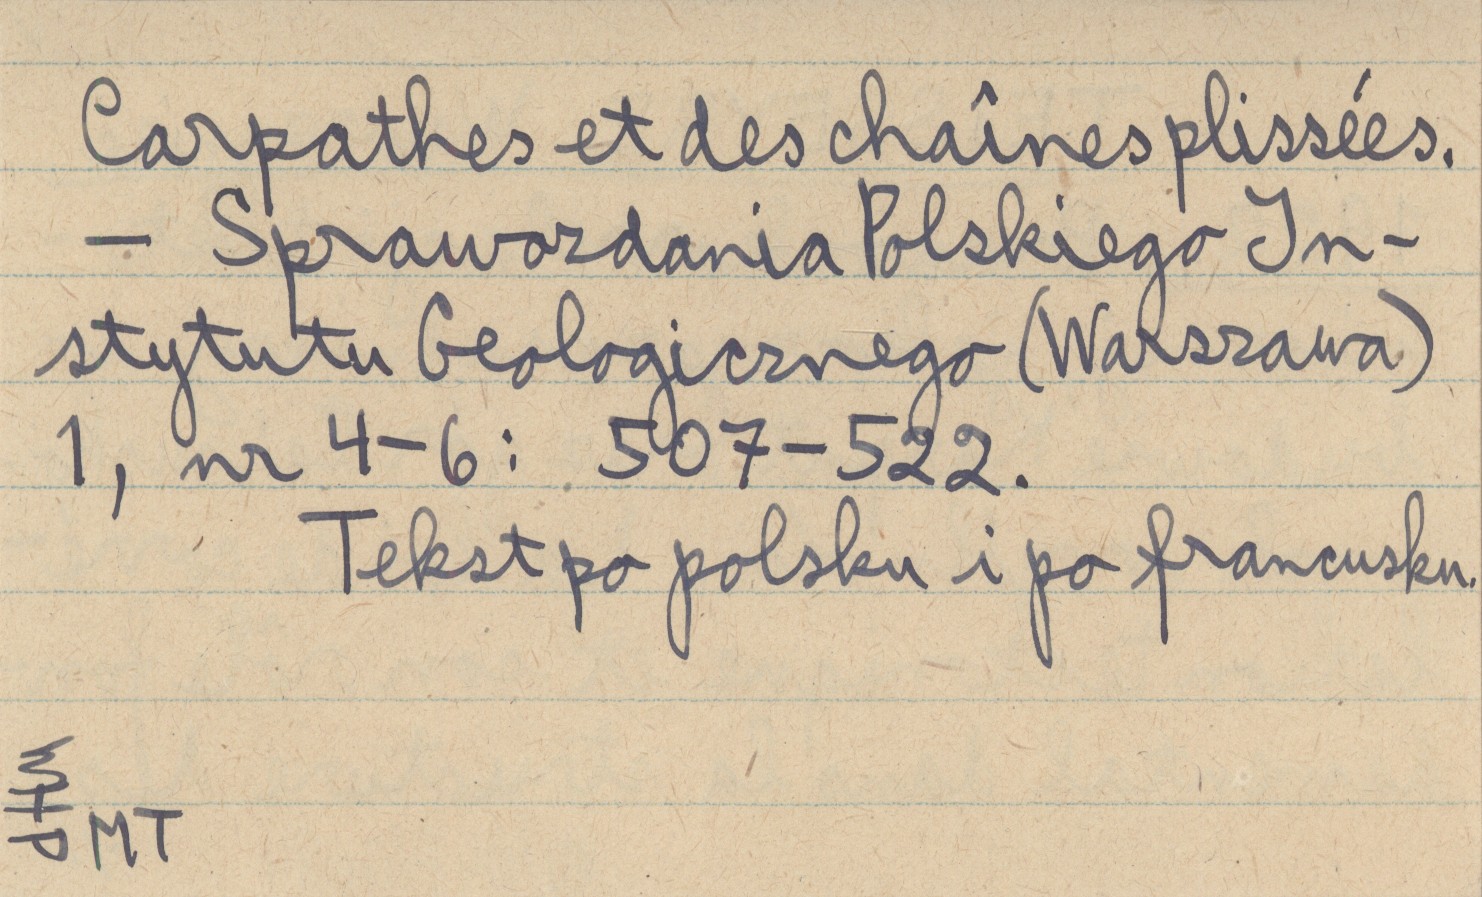 Carpathes et des chaînes plissées.
— Sprawozdania Polskiego In-
stytutu Geologicznego (Warszawa)
1, nr 4-6: 507-522.
Tekst po polsku i po francusku.
MT